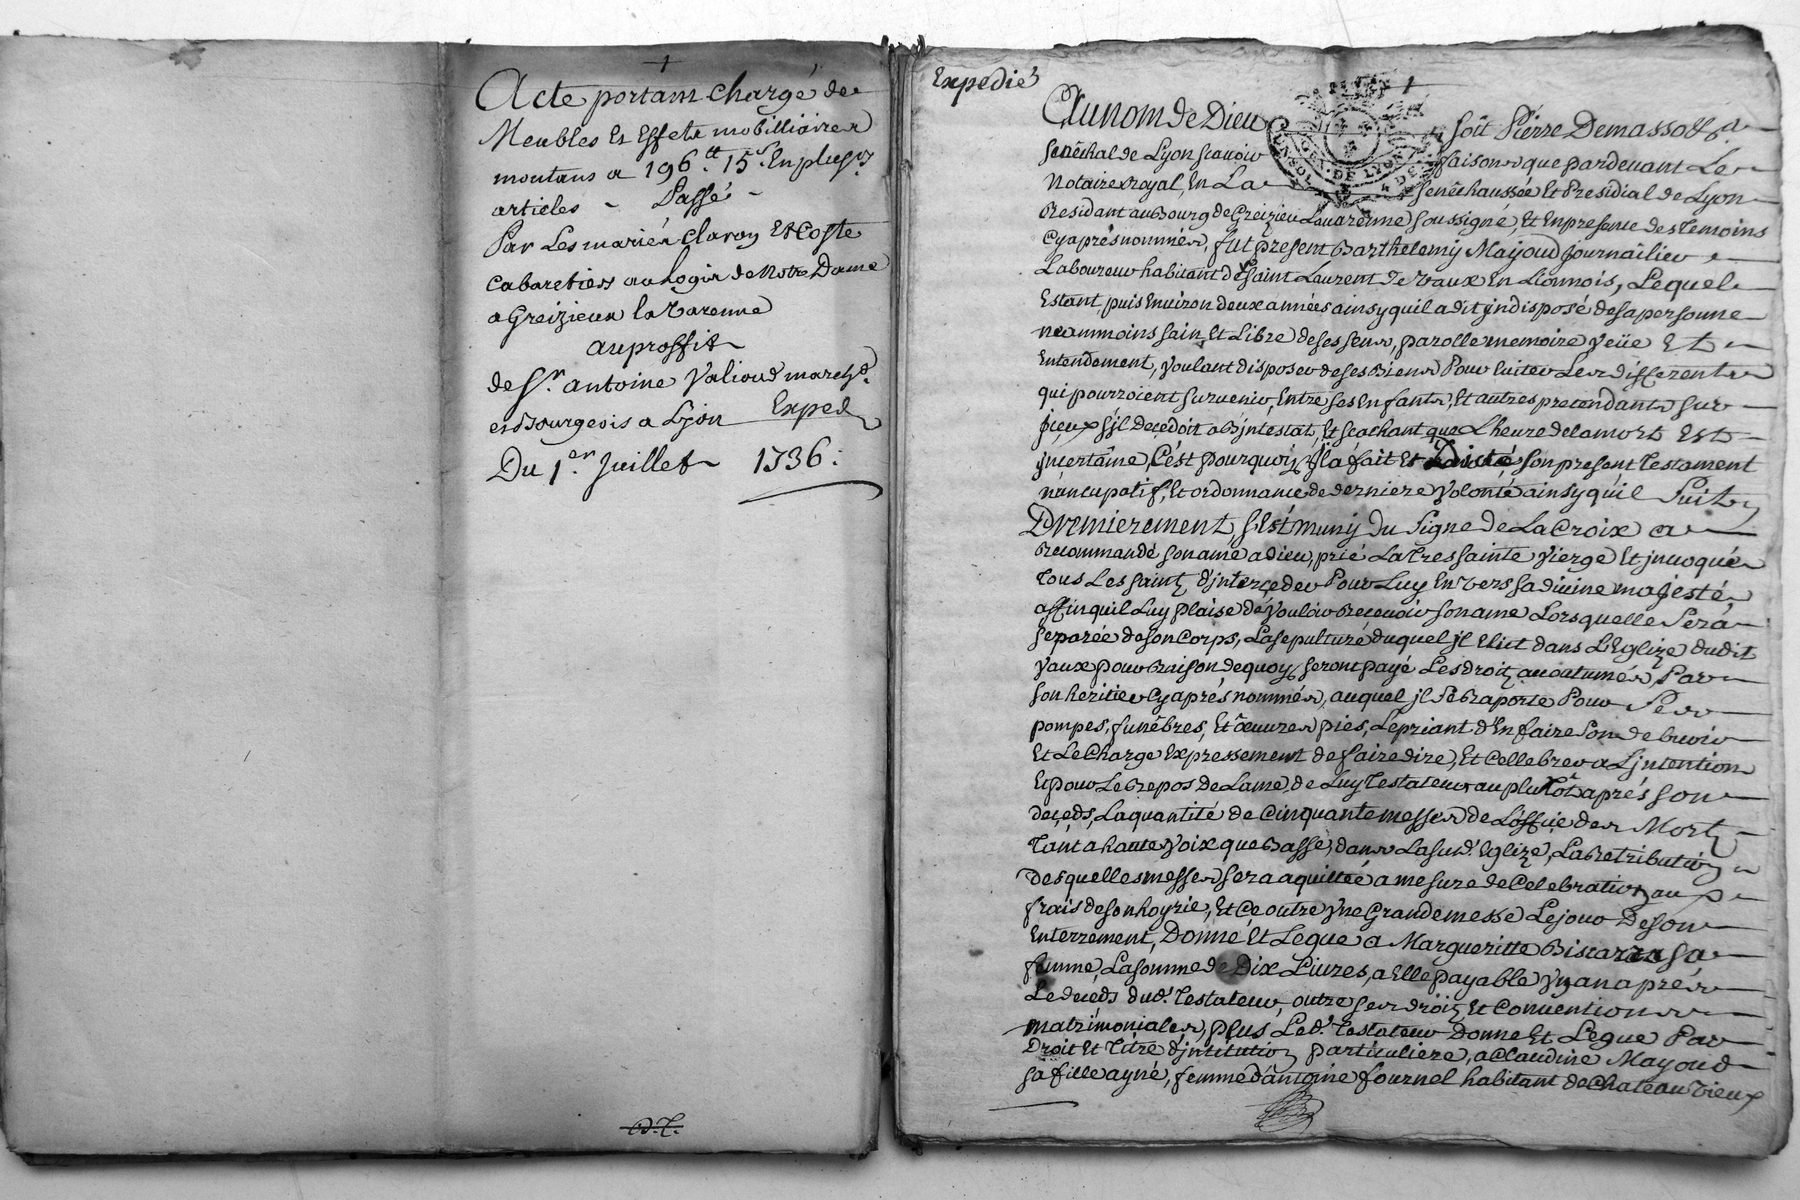 1
Acte portant chargé de
Meubles Et Effets mobilliaires
montans a 196.tt 15.s En plusrs
articles - Passé -
Par Les mariés Clavoy Et Coste
Cabaretiers au Logis de Notre Dame
a Greizieux la Varenne
au proffit
de Sr. antoine Valioud marchd.
et Bourgeois a Lyon Exped
Du 1.er Juillet 1736.
Expedié
1
Au nom de Dieu soit Pierre Demassott
senéchal de Lyon scavoir faisons que pardevant Le
Notaire royal, En La senêchaussée Et Presidial de Lyon
Residant au Bourg de Greizieu Lavarenne soussigné, Et En presence des temoins
Cyaprés nommés, fut present Barthelemy Mayoud Journailier
Laboureur habitant de Saint Laurent De Vaux En Lionnois, Lequel
Estant, puis Environ deux années ainsy quil a dit jndisposé de sa personne
neammoins sain Et Libre de ses sens, parolle memoire veüe Et
Entendement, voulant disposer de ses Biens Pour Eviter Les differents
qui pourroient survenir, Entre ses Enfants, Et autres pretendants sur
jceux s'jl decedoit abjntestat, Et scachant que L'heure de la mort Est
jncertaine, C'ést pourquoy jl a fait Et Dicté son present testament
nuncupatif, Et ordonnance de derniere volonté ainsy quil suit
Premierement, s'ést muny du signe de La Croix a
Recommandé son ame a dieu, prié La tres sainte vierge Et jnvoqué
tous Les saints d'jnterceder Pour Luy Envers sa divine majesté,
affin quil Luy plaise de vouloir Recevoir son ame Lors quelle sera
separée de son Corps, La sepulture duquel jl Elit dans L'Eglize dudit
vaux pour Raison de quoy seront payé Les droits accoutumés, Par
son heritier Cyaprés nommés, auquel jl se Raporte Pour ses
pompes, funébres, Et œuvres pies, Le priant d'En faire son debvoir
Et Le Charge Expressement de faire dire, Et Cellebrer a L'jntention
Et pour Le Repos de L'ame, de Luy Testateur au plutôt aprés son
decéds, La quantité de cinquante messes de L'office des Morts
Tant a haute voix que Basse, dans La susd. Eglize, La Retribution
desquelles messes sera aquittée a mesure de Celebration au
frais de son hoyrie, Et Ce outre vne Grande messe Le jour De son
Enterrement, Donne Et Legue a Margueritte Biscarra sa
femme, La somme de Dix Livres, a Elle payable vn an aprés
Le decéds dud. Testateur, outre ses droits Et Conventions
matrimoniales, plus Led. Testateur Donne Et Legue Par
Droit Et titre d'jntitution particuliere, a Claudine Mayoud
sa fille ayné, femme d'antoine fournel habitant de Chateauvieux